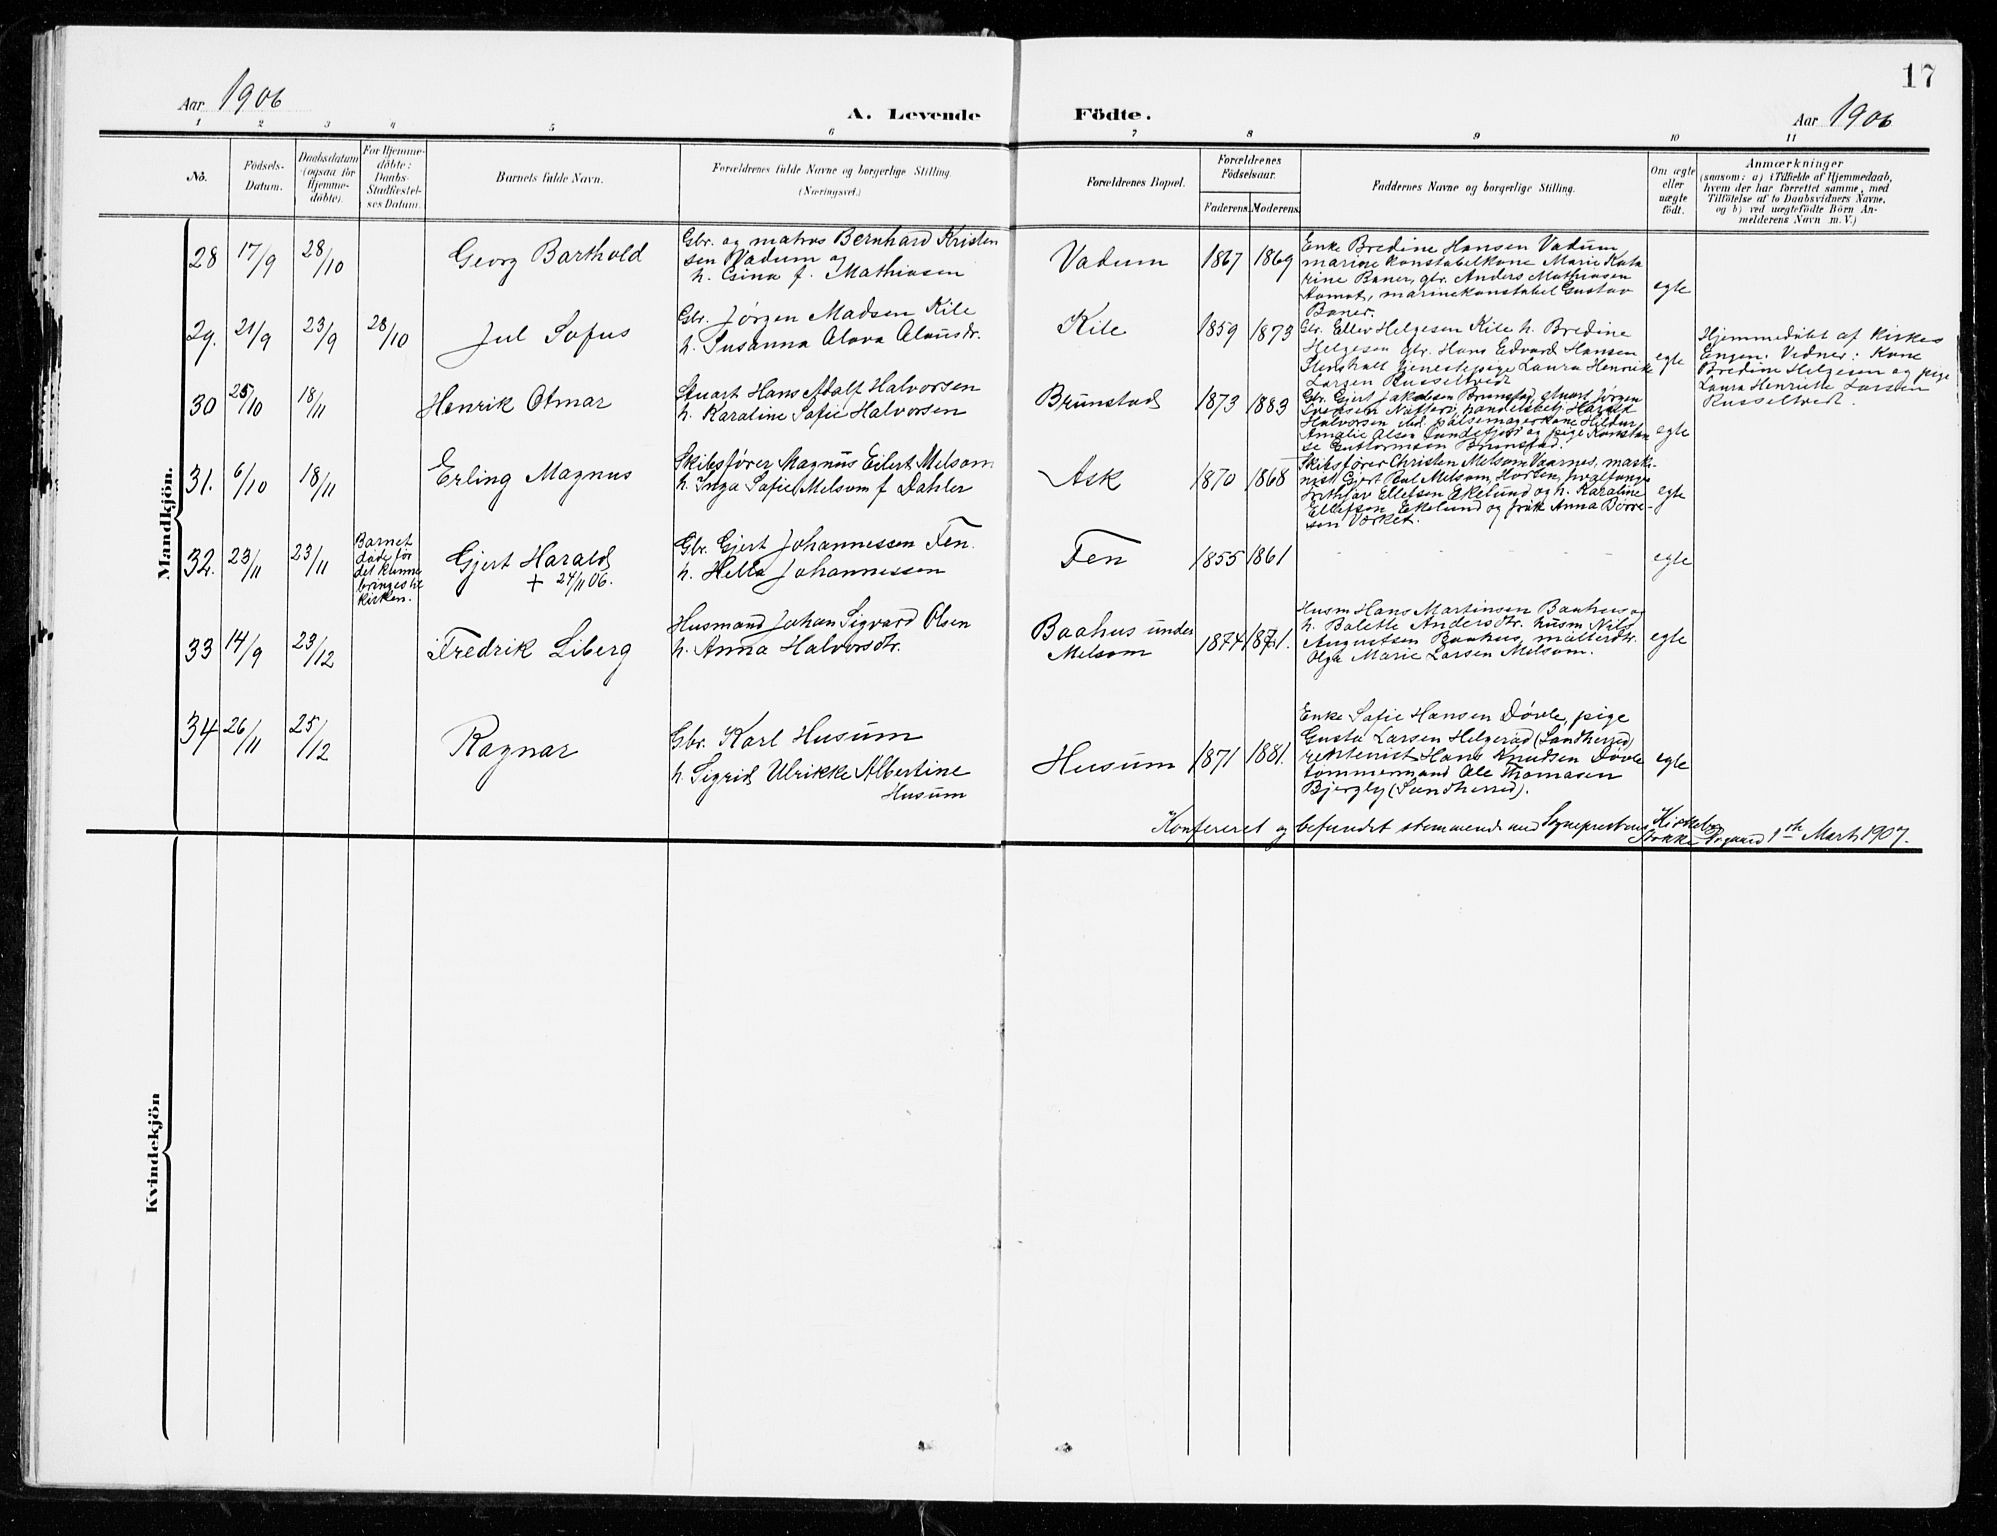 17
Aar 1906
A. Levende Födte.
Aar 1906
1 2 3 4 5 6 7 8 9 10 11
No.
Födsels-
Datum.
Daabsdatum
(ogsaa for
Hjemme-
döbte).
For Hjemme-
döbte:
Daabs-
Stadfestel-
ses Datum.
Barnets fulde Navn.
Forældrenes fulde Navne og borgerlige Stilling.
(Næringsvei.)
Forældrenes Bopæl.
Forældrenes
Födselsaar.
Faderens. Moderens.
Faddernes Navne og borgerlige Stilling.
Om ægte
eller
uægte
födt.
Anmærkninger
(saasom: a) i Tilfælde af Hjemmedaab,
hvem der har forrettet samme, med
Tilföielse af to Daabsvidners Navne.
og b) ved uægtefödte Börn An-
melderens Navn m. V.)
Mandkjön.
28 17/9 28/10
Georg Barthold
Gbr. og matros Bernhard Kristen
sen Vadum og
h. Gina f. Mathiasen
Vadum
1867 1869
Enke Bredine Hansen Vadum
marinekonstabelkone Marie Kata
rine Baner, gbr. Anders Mathiasen
Aamot, marinekonstabel Gustav
Baner.
egte
29. 21/9 23/9 28/10
Jul Sofus
Gbr. Jörgen Madsen Kile
h. Susanna Alava Olausdr.
Kile
1859 1873
Gbr. Ellev Helgesen Kile h. Bredine
Helgesen gbr. Hans Edvard Hansen
tjenestepige Laura Henrikke
Larsen Russeltvedt
egte
Hjemmedöbt af kirkes
Engen. Vidner: Kone
Bredine Helgesen og pige
Laura Henriette Larsen
Russeltvedt.
30 25/10 18/11
Henrik Otmar
Stuart Hans Adolf Halvorsen
h. Karaline Sofie Halvorsen
Brunstad
1873 1883
Gbr. Gjert Jakobsen Brunstad, stuart Jörgen
Svendsen Nötterö, handelsbetj. Harald
Halvorsen ibd. pölsemagerkone Hildur
Amalie Olsen og pige Konstan
se Guttormsen Brunstad.
egte
31. 6/10 18/11
Erling Magnus
Skibsförer Magnus Eilert Melsom
h. Inga Sofie Melsom f Dahler
Ask
1870 1868
Skibsförer Christen Melsom Vaarnes, maski-
nist Gjert Pal Melsom, Horten,
Frithjov Ellefsen Ekelund og h. Karaline
Ellefsen Ekelund og frök Anna Börre-
sen Værket.
egte
32. 23/11 23/11
Barnet
döde för
det kunne
bringes til
kirken.
Gjert Harald
+ 24/11 06.
Gbr. Gjert Johannessen Fen.
h. Hella Johannessen
Fen
1855 1861
egte
33 14/9 23/12
Fredrik Liberg
Husmand Johan Sigvard Olsen
h. Anna Halvorsdtr.
Baahus under
Melsom
1874 1871.
Husm Hans Martinsen Baahus og
h. Balette Andersdtr. husm Nils
Augustsen Baahus, mölterdtr.
Olga Marie Larsen Melsom.
egte
34 26/11 25/12
Ragnar
Gbr. Karl Husum
h. Sigrid Ulrikke Albertine
Husum
Husum
1871 1881.
Enke Sofie Hansen Dövle, pige
Gusta Larsen Helgerød (Sandherred)
rentenist Hans Knudsen Dövle
tömmermand Ole Thomasen
Bjergly (Sandherred).
egte
Konfereret og befundet stemmende med Sogneprestens Kirkebog
Stokke Prgaard 1ste Marts 1907.
Kvindekjön